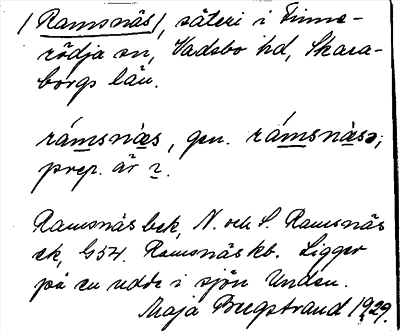 (Ramsnäs), säteri i Finne-
rödja sn, Vadsbo hd, Skara-
borgs län.
rámsnæs, gen. rámsnæsə;
prep. är 2.
Ramsnäs bek, N. och S. Ramsnäs
ek, G54. Ramsnäs kb. Ligger
på en udde i sjön Unden.
Maja Bergstrand 1929.